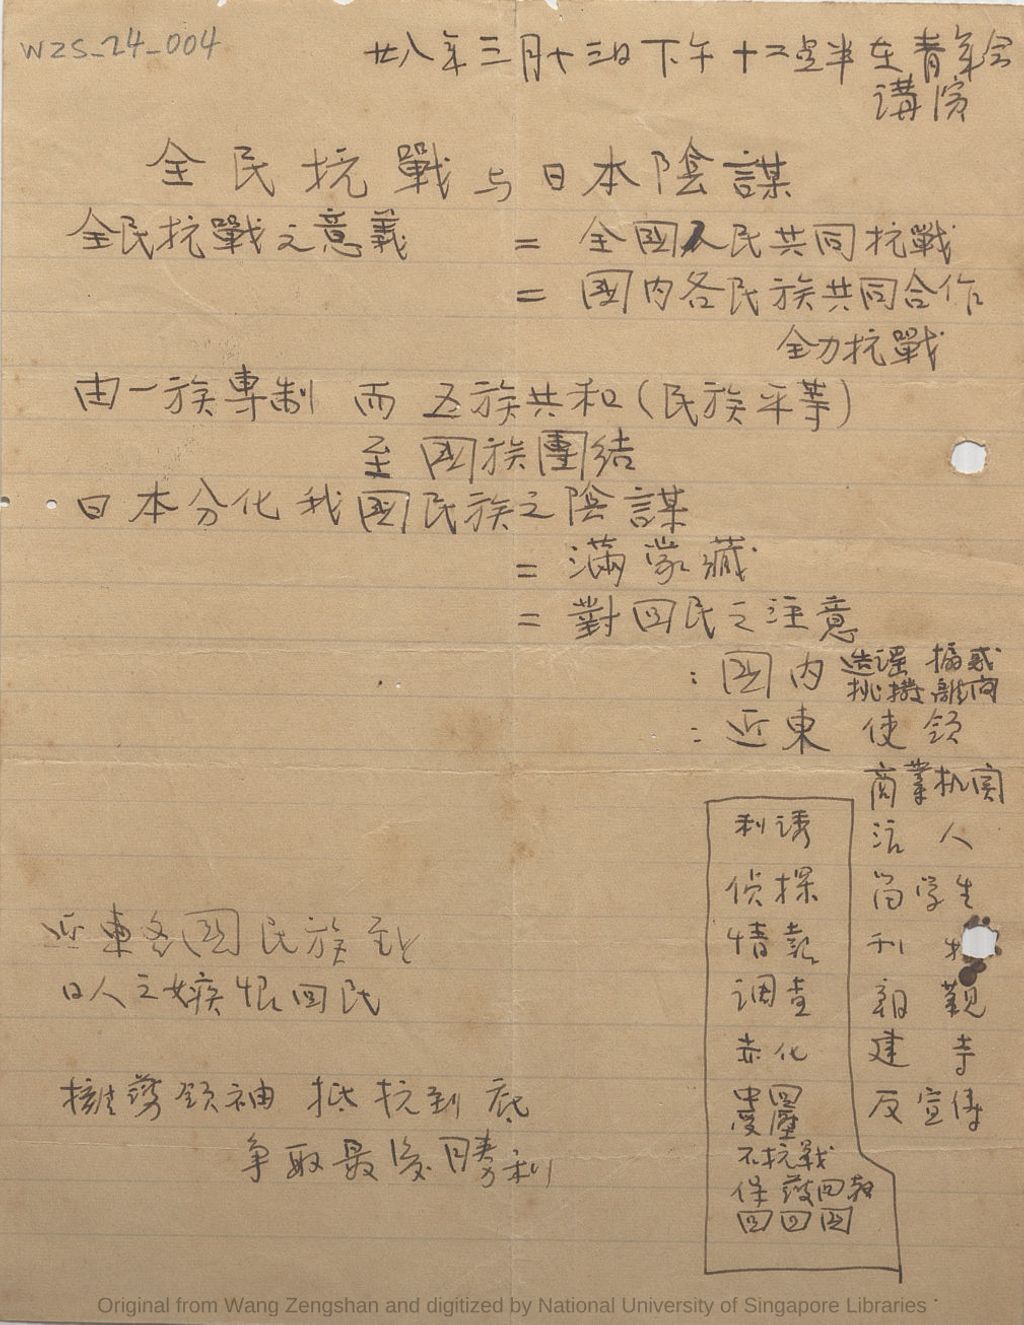 WZS_24_004
廿八年三月十三日下午十二点半在青年会
講演
全民抗戰与日本陰謀
全民抗戰之意義 = 全國人民共同抗戰
= 國内各民族共同合作
全力抗戰
由一族專制 而 五族共和(民族平等)
至國族團結
日本分化我國民族之陰謀
= 滿蒙藏
= 對回民之注意
: 國内 造謡 煽惑
挑撥 離间
: 近東 使領
商業机関
利诱 活人
侦探 留学生
情報 刊
调查 朝觐
赤化 建寺
中國回 反宣傳
受壓
不抗戰
保護回教
回回国
近東各國民族至
日人之嫉恨回民
擁護領袖 抵抗到底
争取最後勝利
Original from Wang Zengshan and digitized by National University of Singapore Libraries